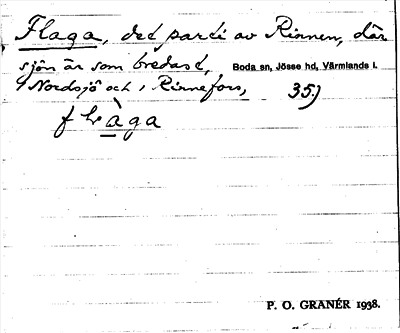 Flaga, det parti av Rinnen, där
sjön är som bredast,
Boda sn, Jösse hd, Värmlands l.
i Nordsjö och i Rinnefors,
35.)
P. O. GRANÉR 1938.